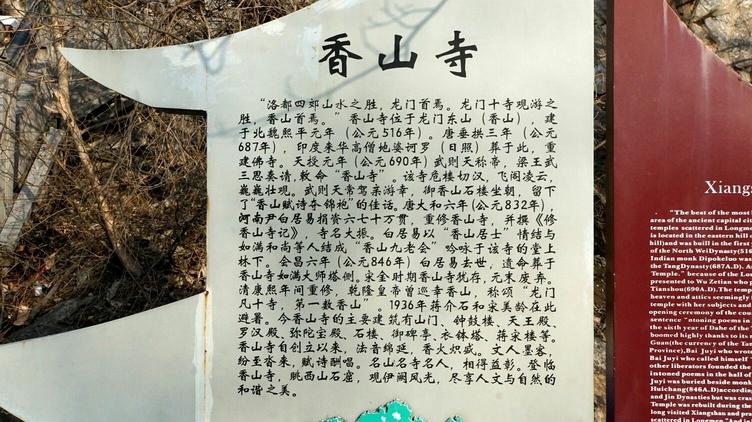 香山寺
“洛都四郊山水之胜，龙门首焉。龙门十寺观游之
胜，香山首焉。”香山寺位于龙门东山（香山），建
于北魏熙平元年（公元516年）。唐垂拱三年（公元
687年），印度来华高僧地婆诃罗（日照）葬于此，重
建佛寺。天授元年（公元690年）武则天称帝，梁王武
三思奏请，敕命“香山寺”。该寺危楼切汉，飞阁凌云，
巍巍壮观。武则天常驾亲游幸，御香山石楼坐朝，留下
了“香山赋诗夺锦袍”的佳话。唐大和六年（公元832年），
河南尹白居易捐资六七十万贯，重修香山寺，并撰《修
香山寺记》，寺名大振。白居易以“香山居士”情结与
如满和尚等人结成“香山九老会”吟咏于该寺的堂上
林下。会昌六年（公元846年）白居易去世，遗命葬于
香山寺如满大师塔侧。宋金时期香山寺犹存，元末废弃。
清康熙年间重修，乾隆皇帝曾巡幸香山，称颂“龙门
凡十寺，第一数香山”。1936年蒋介石和宋美龄在此
避暑。今香山寺的主要建筑有山门、钟鼓楼、天王殿、
罗汉殿、弥陀宝殿、石楼、御碑亭、衣钵塔、蒋宋楼等。
香山寺自创立以来，法音绵延，香火炽盛。文人墨客，
纷至沓来，赋诗酬唱。名山名寺名人，相得益彰。登临
香山寺，眺西山石窟，观伊阙风光，尽享人文与自然的
和谐之美。
Xiangs
"The best of the most
area of the ancient capital cit
temples scattered in Longme
is located in the eastern hill o
hill)and was built in the first
of the North WeiDynasty(516
Indian monk Dipokeluo was
the TangDynasty(687A.D). A
Temple." because of the Lo
presented to Wu Zetian who p
Tianshou(690A.D).The temp
heaven and attics seemingly
temple with her subjects and
opening ceremony of the cou
sentence "ntoning poems in
the sixth year of Dahe of the
boomed highly thanks to its r
Guan(the currency of the Tan
Province),Bai Juyi who wrote
Bai Juyi who called himself "
other literators founded the
intoned poems in the hall of
Juyi was buried beside monk
Huichang(846A.D)according
and Jin Dynasties but was cras
Temple was rebuilt during the
long visited Xiangshan and pra
scattered in Longmen "And is